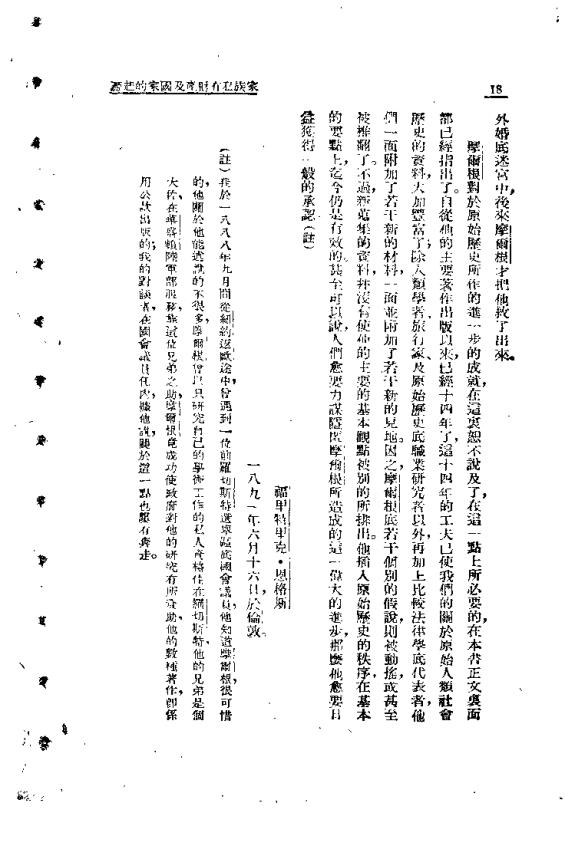 家族私有財產及國家的起源
18
外婚底迷宮中,後來摩爾根才把他救了出來。
摩爾根對於原始歷史所作的進一步的成就,在這裏恕不說及了,在這一點上所必要的,在本書正文裏面
都已經指出了。自從他的主要著作出版以來,已經十四年了,這十四年的工夫已使我們的關於原始人類社會
歷史的資料,大加豐富了;除人類學者、旅行家、及原始歷史底職業研究者以外,再加上比較法律學底代表者,他
們一面附加了若干新的材料,一面並附加了若干新的見地。因之,摩爾根底若干個別的假說,則被動搖,或甚至
被推翻了。不過,新蒐集的資料,并沒有使他的主要的基本觀點被別的所排出。他插入原始歷史的秩序,在基本
的要點上,迄今仍是有效的。甚至可以說,人們愈要力謀隱匿摩爾根所造成的這一偉大的進步,那麼他愈要日
益獲得一般的承認。(註)
福里特里克·恩格斯
一八九一年六月十六日,於倫敦。
(註)我於一八八八年九月間從紐約返歐途中,曾遇到一位前羅切斯特選舉區底國會議員,他知道摩爾根,很可惜
的,他關於他能述說的不很多,摩爾根曾以只研究自己的學術工作的私人資格住在羅切斯特,他的兄弟是個
大佐,在華盛頓陸軍部服務,藉這位兄弟之助,摩爾根竟成功使政府對他的研究有所資助,他的數種著作即係
用公款出版的;我的對談者,在國會議員任內,據他說,關於這一點也還有奔走。